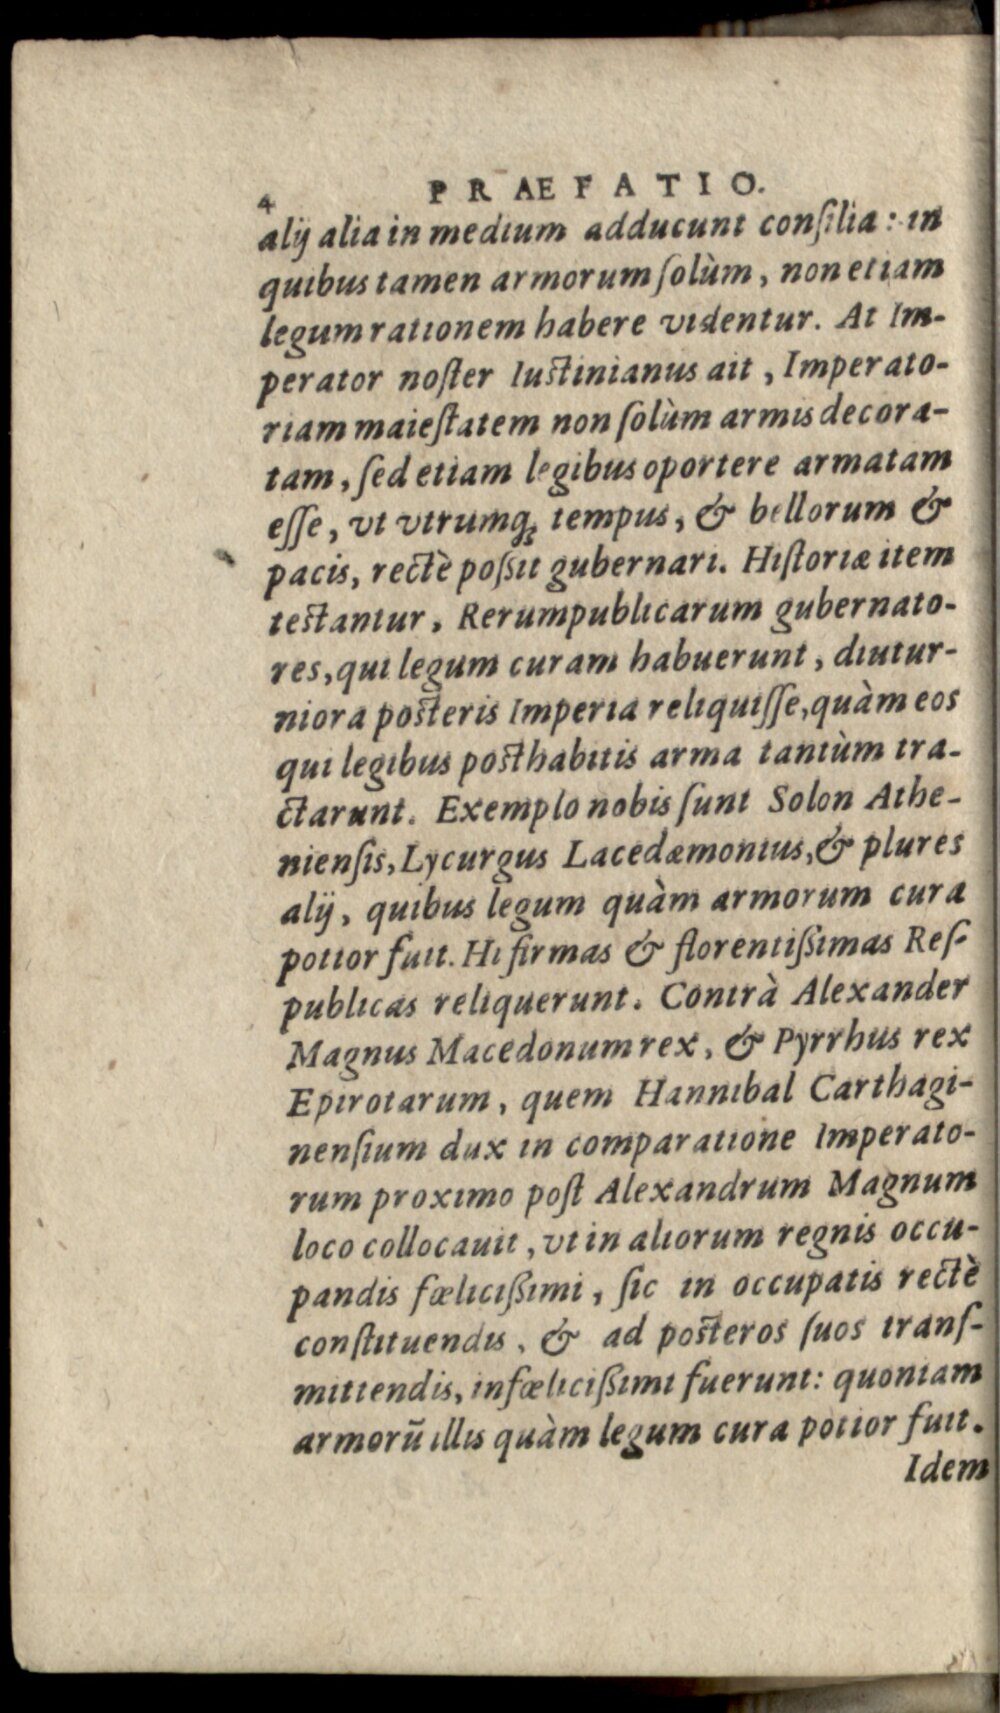 4 PRÆFATIO.
alij alia in medium adducunt conſilia: in
quibus tamen armorum ſolùm, non etiam
legum rationem habere videntur. At Im-
perator noſter Iuſtinianus ait, Imperato-
riam maieſtatem non ſolùm armis decora-
tam, ſed etiam legibus oportere armatam
eſſe, vt vtrumq; tempus, & bellorum &
pacis, rectè poßit gubernari. Hiſtoriæ item
teſtantur, Rerumpublicarum gubernato-
res, qui legum curam habuerunt, diutur-
niora poſteris Imperia reliquiſſe, quàm eos
qui legibus poſthabitis arma tantùm tra-
ctarunt. Exemplo nobis ſunt Solon Athe-
nienſis, Lycurgus Lacedæmonius, & plures
alij, quibus legum quàm armorum cura
potior fuit. Hi firmas & florentißimas Reſ-
publicas reliquerunt. Contrà Alexander
Magnus Macedonum rex, & Pyrrhus rex
Epirotarum, quem Hannibal Carthagi-
nenſium dux in comparatione Imperato-
rum proximo poſt Alexandrum Magnum
loco collocauit, vt in aliorum regnis occu-
pandis fœlicißimi, ſic in occupatis rectè
conſtituendis, & ad poſteros ſuos tranſ-
mittendis, infœlicißimi fuerunt: quoniam
armorũ illis quàm legum cura potior fuit.
Idem